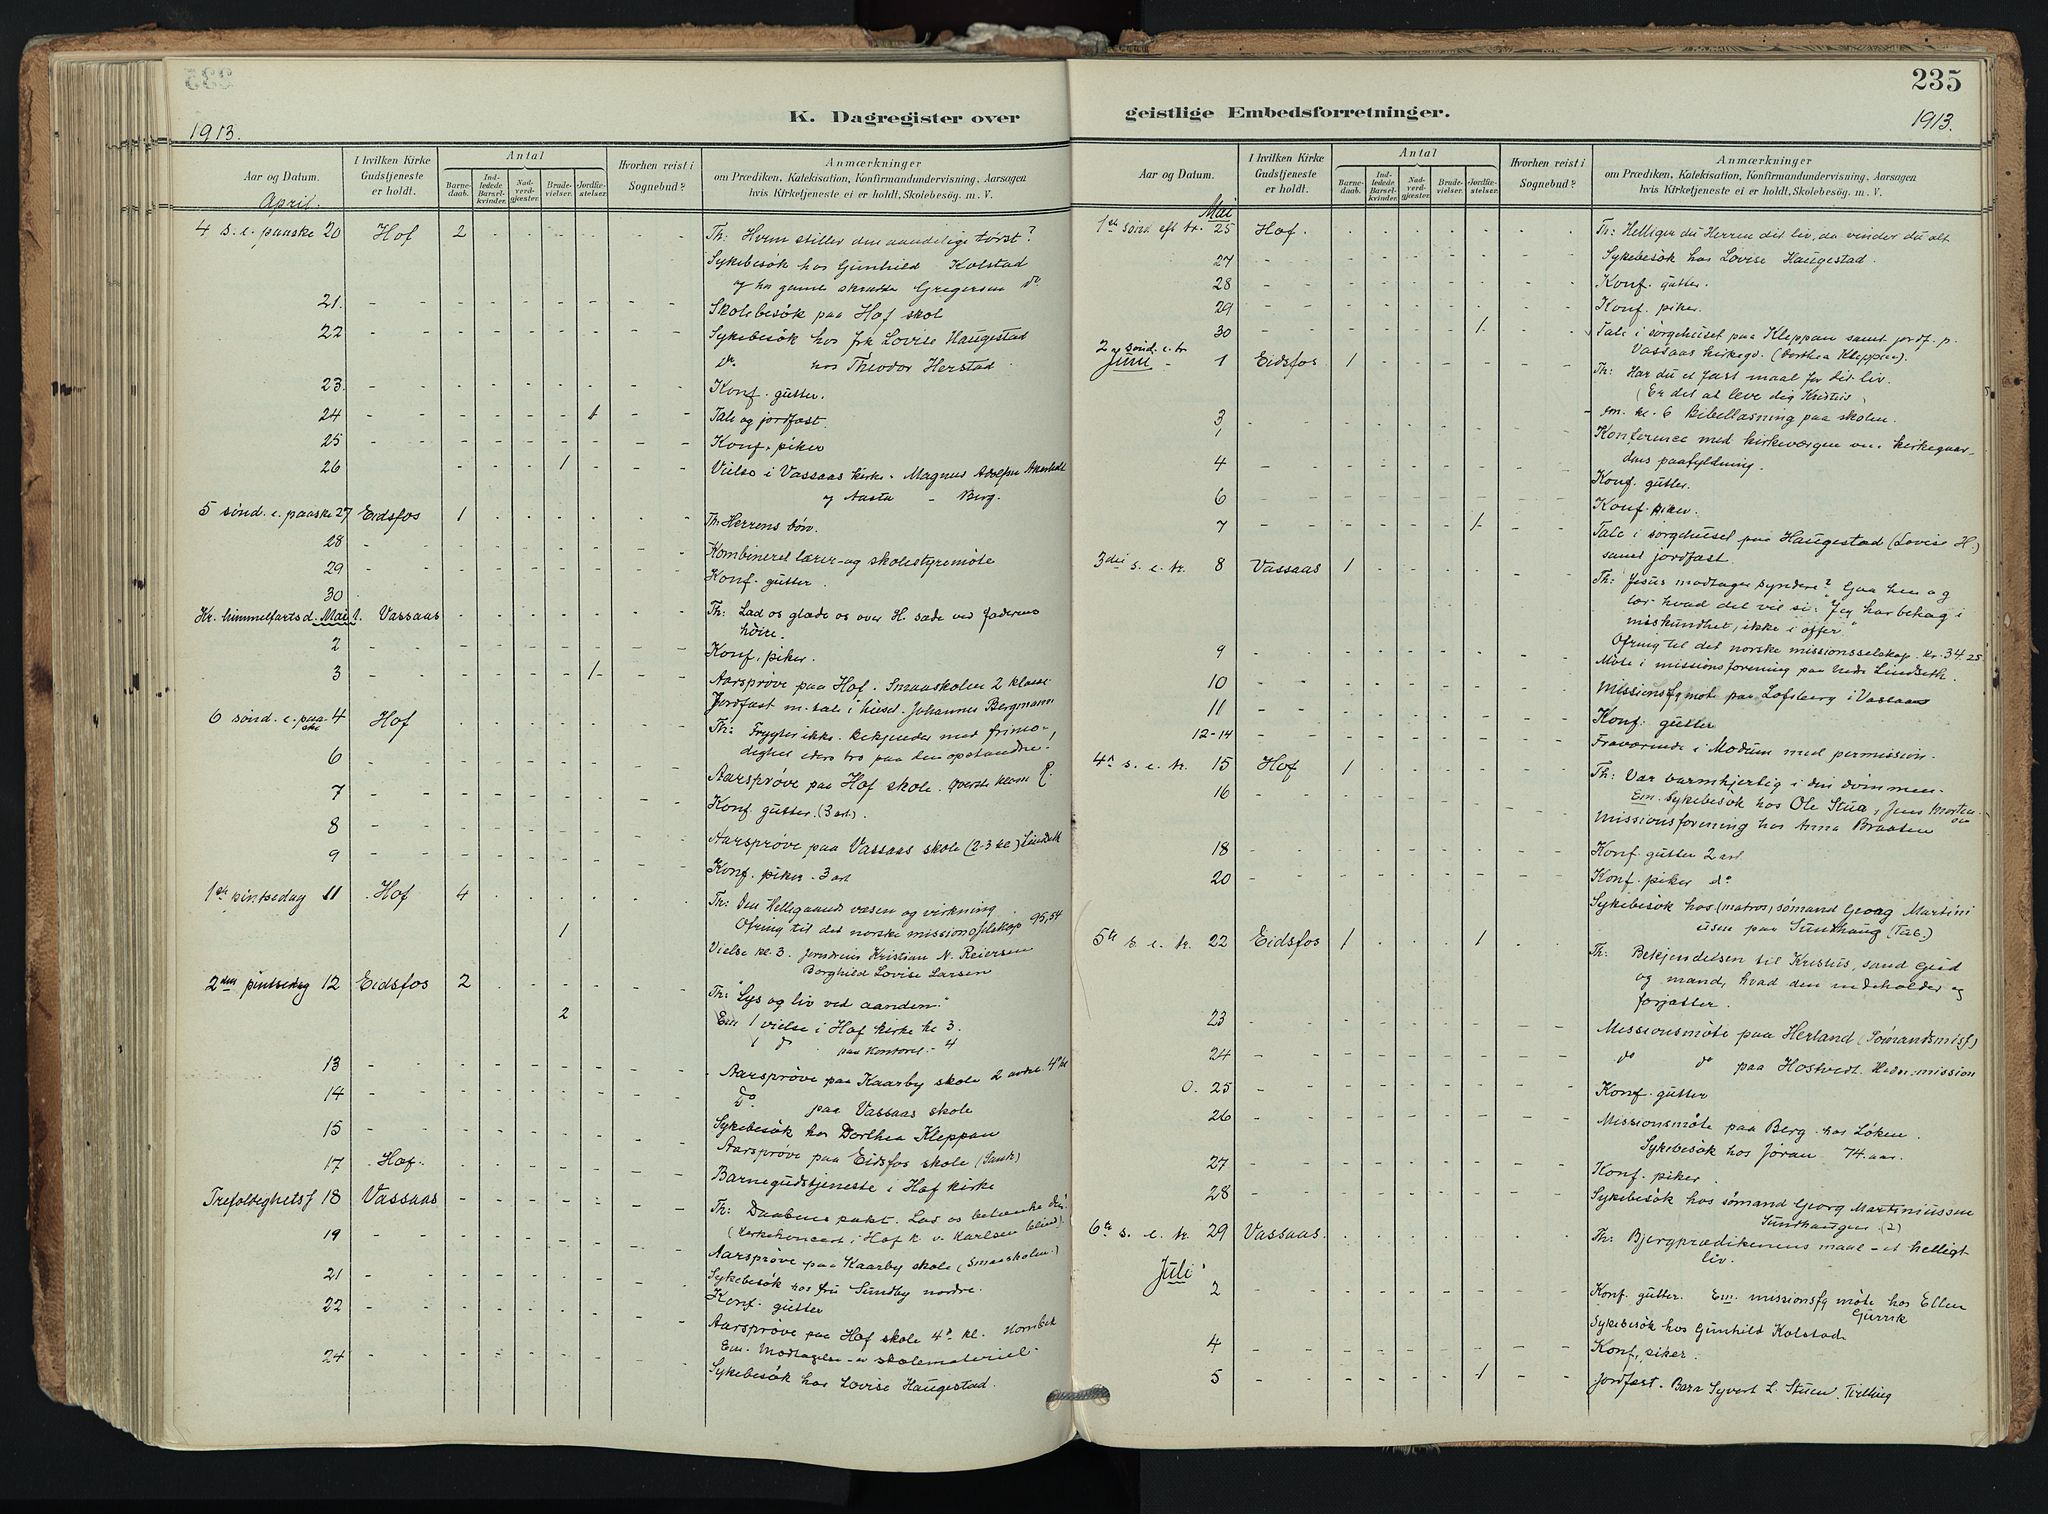 K. Dagregister over
1913.
Aar og Datum.
I hvilken Kirke Gudstjeneste er holdt.
Antal
Barnedaab.
Indledede Barselkvinder.
Nadverdgjæster.
Brudevielser.
Jordfæstelser.
Hvorhen reist i Sognebud?
Anmærkninger
om Prædiken, Katekisation, Konfirmandundervisning, Aarsagen
hvis Kirketjeneste ei er holdt, Skolebesög. m. V.
April.
4 s. e. paaske 20 Hof 2 Th: Hvem stiller den aandelige törst?
Sykebesök hos Gunhild Kolstad
og hos gamle Gregersen do
21. Skolebesök paa Hof skol
22 Sykebesök hos frk Lovise Haugestad
do hos Theodor Herstad
23. Konf. gutter.
24 1 Tale og jordfæst.
25 Konf. piker
26 1 Vielse i Vassaas kirke. Magnus Adolfsen
og Aasta - Berg.
5 sönd. e. paaske 27 Eidsfos 1 Th: Herrens börn.
28 Kombineret lærer- og skolestyremöte
29 Konf. gutter.
30
Kr. himmelfartsd. Mai 1. Vassaas Th: Lad os glæde os over H. sæde ved faderens
höire.
2 Konf. piker.
3 1 Aarspröve paa Hof. Smaaskolen 2 klasse
Jordfæst m. tale i huset. Johannes Bergmann
6 sönd. e. paaske 4 Hof Th: Frygter ikke. Bekjender med frimodighet
eders tro paa den opstandne!
6 Aarspröve paa Hof skole. överste klasse
7 Konf. gutter. (3 art.).
8 Aarspröve paa Vassaas skole (2-3 kl) Lindseth
9 Konf. piker. 3 art
1ste pintsedag 11 Hof 4 Th: Den Helligaands væsen og virkning
Ofring til det norske missionsselskap 95,54
1 Vielse kl. 3. Kristian N. Reiersen
Borghild Lovise Larsen
2den pintsedag 12 Eidsfos 2 Th: "Lys og liv ved aanden."
2 Em 1 vielse i Hof kirke kl 3.
1 do paa kontoret - 4
13 Aarspröve paa Kaarby skole 2 andre 4de kl
14 do paa Vassaas skole
15 Sykebesök hos Dorthea Kleppan
Aarspröve paa Eidsfos skole
17 Hof. Barnegudstjeneste i Hof kirke
Trefoldighetsf 18 Vassaas Th: Daabens pakt. Lad os betænke den.
(Kirkekoncert i Hof k. v. Karlsen blind).
19 Aarspröve paa Kaarby skole (Smaaskolen.)
21 Sykebesök hos fru Sundby nordre.
22 Konf. gutter
Aarspröve paa Hof skole 4de kl.
Em. Modtagelse av skolemateriel.
24 Sykebesök hos Lovise Haugestad.
235
geistlige Embedsforretninger.
1913.
Aar og Datum.
I hvilken Kirke Gudstjeneste er holdt.
Antal
Barnedaab.
Indledede Barselkvinder.
Nadverdgjæster.
Brudevielser.
Jordfæstelser.
Hvorhen reist i Sognebud?
Anmærkninger
om Prædiken, Katekisation, Konfirmandundervisning, Aarsagen
hvis Kirketjeneste ei er holdt, Skolebesög. m. V.
Mai
1ste sönd eft tr. 25 Hof. Th: Helliger du Herren dit liv, da vinder du alt
27 Sykebesök hos Lovise Haugestad.
28 Konf. gutter.
29 Konf. piker.
30 1 Tale i sörgehuset paa Kleppan samt jordf. p.
Vassaas kirkegd. (Dorthea Kleppan).
2 sönd. e. tr
Juni 1 Eidsfos 1 Th: Har du et fast maal for dit liv.
(Er det at leve dig Kristus
em. kl. 6 Bibellæsning paa skolen.
3 Konference med kirkeværgen om kirkegaardens
paafyldning.
4 Konf. gutter.
6 Konf. piker.
7 1 Tale i sörgehuset paa Haugestad (Lovise H.)
samt jordfæst.
3die s. e. tr. 8 Vassaas 1 Th: Jesus modtager syndere? Gaa hen og
lær hvad det vil si: "Jeg har behag i
miskundhet, ikke i offer".
Ofring til det norske missionsselskap. kr. 34.25
9 Möte i missionsforening paa nedre Lindseth.
10 Missionsfg möte paa Lofsberg i Vassaas
11 Konf. gutter
12-14 Fraværende i Modum med permission.
4de s. e. tr. 15 Hof 1 Th: Vær barmhjertig i din dömmen.
Em. Sykebesök hos Ole Stua, Jens Mortensen
16 Missionsforening hos Anna Braaten
18 Konf. gutter 2 art
20 Konf. piker do
Sykebesök hos (matros) sömand Georg Martiniusen
paa Sundhaug (Tub.)
5te s. e. tr. 22 Eidsfos 1 1 Th: Bekjendelsen til Kristus, sand Gud
og mand, hvad den indeholder og
forjætter.
23 Missionsmöte paa Herland (Sömandsmisj)
24 do do paa Hostvedt. Hedn: mission
O. 25 Konf. gutter
26 Missionsmöte paa Berg hos Löken.
Sykebesök hos Jöran 74. aar.
27 Konf. piker.
28 Sykebesök hos sömand Georg Martiniussen
Sundhaugen (2)
6te s. e. tr. 29 Vassaas. Th: Bjergprædikenens maal - et helligt
liv.
Juli
2 Konf. gutter. Em. missionsfg möte hos Ellen
Gurrik
Sykebesök hos Gunhild Kolstad
4 Konf. piker.
5 1 Jordfæst. Barn Syvert L. Stuen,